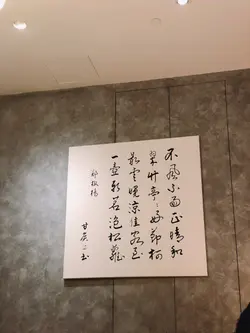 不風不雨正晴和
翠竹亭々好節柯
最愛晚涼佳客至
一壺新茗泡松蘿
鄭板橋
甘 书